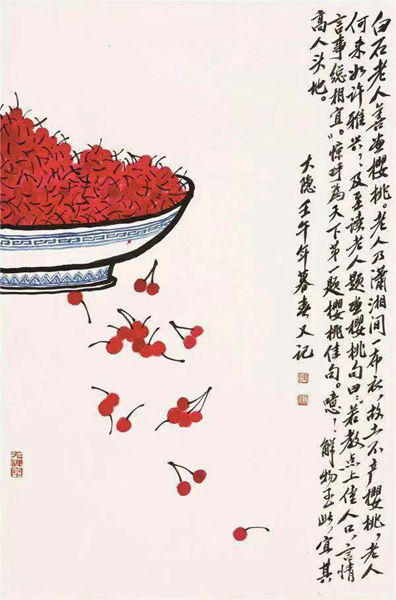 白石老人善畫櫻桃。老人乃瀟湘间一布衣,故土不产櫻桃,老人
何来如许雅兴?及至读老人题畫櫻桃句曰:"若教点上佳人口,言情
言事總相宜"。惊呼為天下第一题櫻桃佳句。噫!解物至此,宜其
高人头地。
大隐 壬午年暮春又记